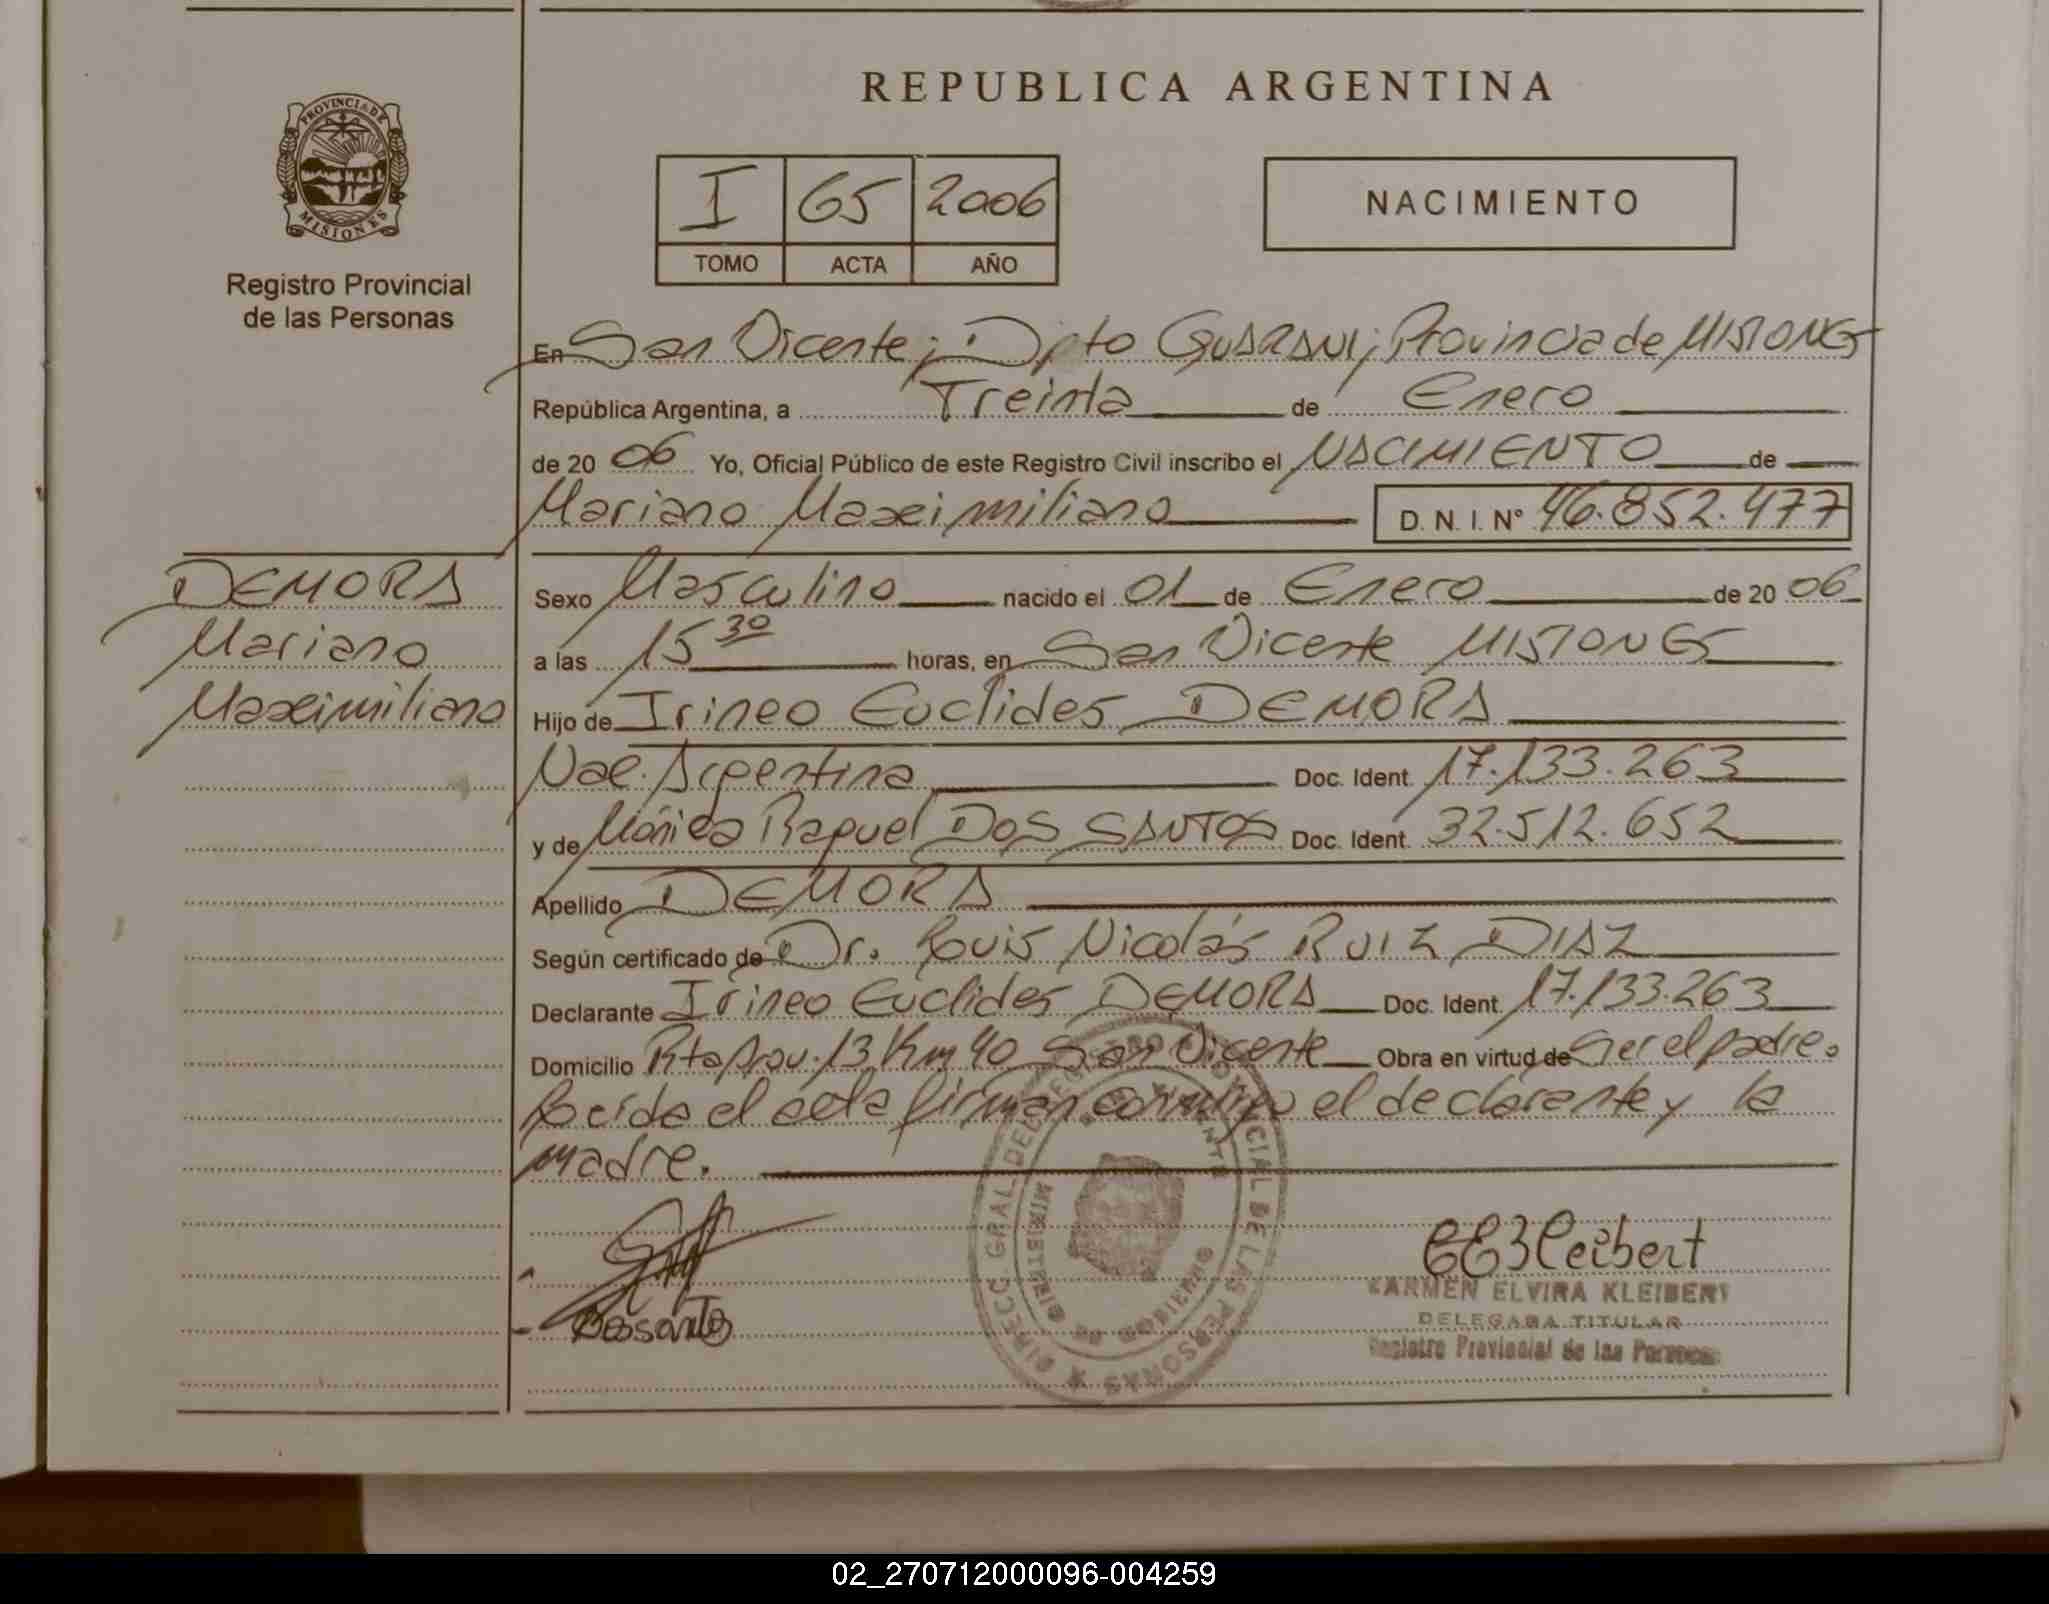 REPUBLICA ARGENTINA
PROVINCIA DE MISIONES
Registro Provincial
de las Personas
I 65 2006
TOMO ACTA AÑO
NACIMIENTO
En San Vicente; Dpto GUARANI; Provincia de MISIONES
República Argentina, a Treinta de Enero
de 20 06 Yo, Oficial Público de este Registro Civil inscribo el NACIMIENTO de
Mariano Maximiliano D.N.I. Nº 46.852.477
DEMORA
Mariano
Maximiliano
Sexo Masculino nacido el 01 de Enero de 20 06
a las 15 30 horas, en San Vicente MISIONES
Hijo de Irineo Euclides DEMORA
Nac. Argentina Doc. Ident. 17.133.263
y de Mónica Raquel DOS SANTOS Doc. Ident. 32.512.652
Apellido DEMORA
Según certificado de Dr. Nicolás RUIZ DIAZ
Declarante Irineo Euclides DEMORA Doc. Ident. 17.133.263
Domicilio Rta Prov. 13 Km 40 San Vicente Obra en virtud de Ser el padre.
el acta firman conmigo el declarante y la
madre.
DIRECC. GRAL. DEL REGISTRO PROVINCIAL DE LAS PERSONAS
MINISTERIO DE GOBIERNO
SAN VICENTE
Dossantos
CE Kleibert
KARMEN ELVIRA KLEIBERT
DELEGADA TITULAR
Registro Provincial de las Personas
02_270712000096-004259